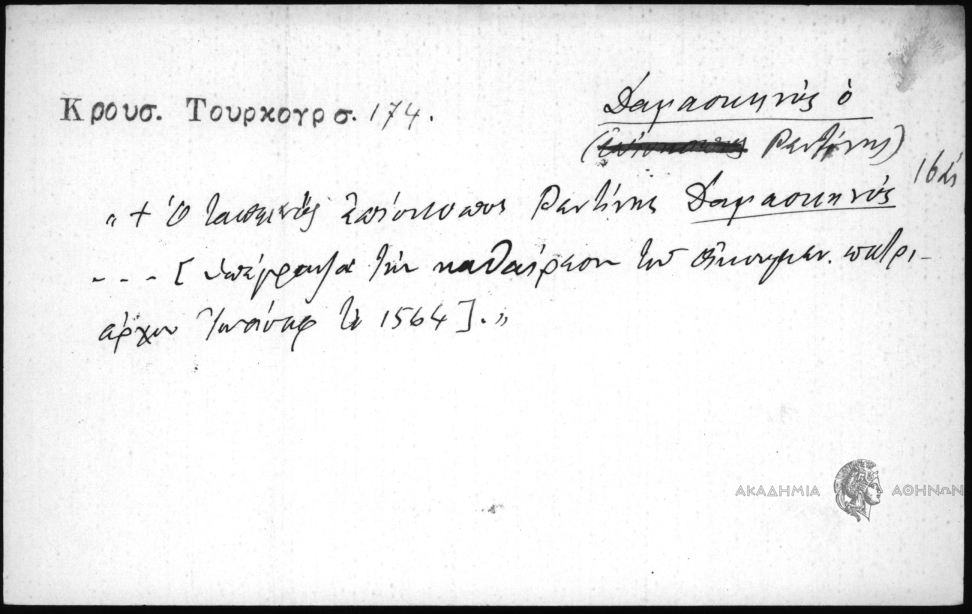 Κρουσ. Τουρκογρσ. 174.
Δαμασκηνός ὁ
( Ρεντίνης)
16 
„ + Ὁ ταπεινὸς Ἐπίσκοπος Ρεντίνης Δαμασκηνός
- - - [ ὑπέγραψα τὴν καθαίρεσιν τοῦ Οἰκουμεν. πατρι-
άρχου Ἰωάσαφ τῷ 1564 ]. „
ΑΚΑΔΗΜΙΑ ΑΘΗΝΩΝ